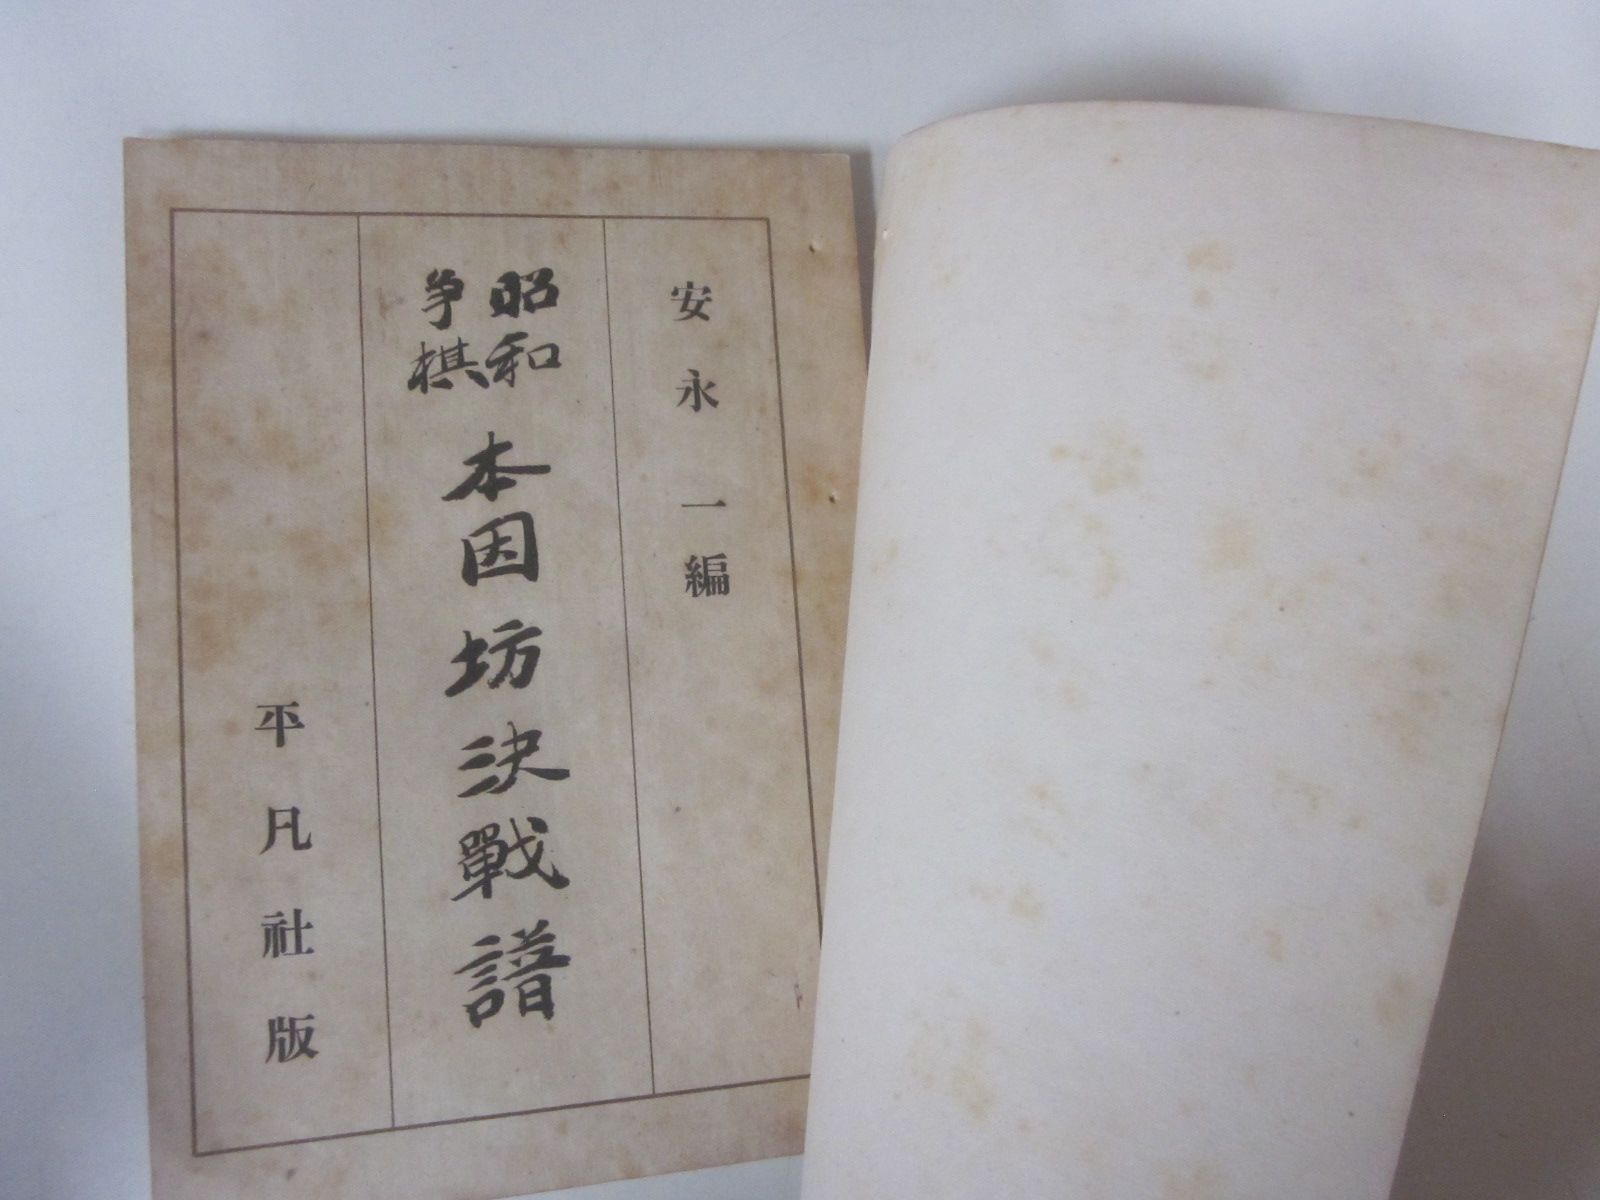 安永一編
昭和
争棋
本因坊決戰譜
平凡社版